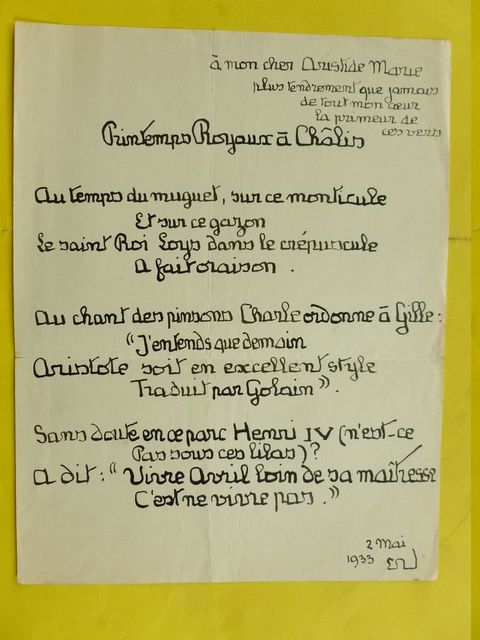 à mon cher Aristide Marie
plus tendrement que jamais
de tout mon cœur
la primeur de
ces vers
Printemps Royaux à Châlis
Au temps du muguet, sur ce monticule
Et sur ce gazon
Le saint Roi Loys dans le crépuscule
A fait oraison .
Au chant des pinsons Charle ordonne à Gille :
“J'entends que demain
Aristote soit en excellent style
Traduit par Golain”.
Sans doute en ce parc Henri IV (n'est-ce
Pas sous ces lilas)?
A dit : “ Vivre Avril loin de sa maîtresse
C'est ne vivre pas .”
2 Mai
1933